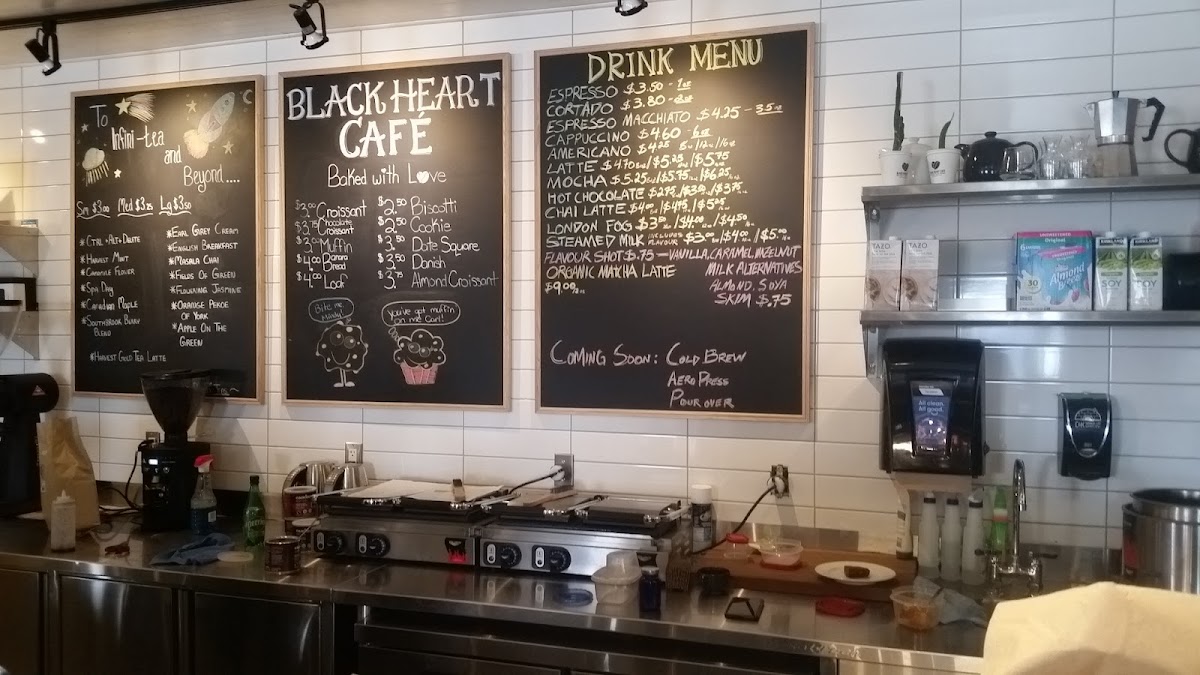 To
Infini-tea
and
Beyond....
Sm $3.00 Med $3.25 Lg $3.50
*Ctrl+Alt+Delete
*Harvest Mint
*Camomile Flower
*Spa Day
*Canadian Maple
*Southbrook Berry
Blend
*Harvest Gold Tea Latte
*Earl Grey Cream
*English Breakfast
*Masala Chai
*Fields Of Green
*Flowering Jasmine
*Orange Pekoe
Of York
*Apple On The
Green
BLACK HEART
CAFÉ
Baked with Love
Croissant
$3.75 Chocolate
Croissant
Muffin
Banana
Bread
Loaf
$2.50 Biscotti
$2.50 Cookie
Date Square
Danish
Almond Croissant
Bite me
you've got muffin
on me Carl!
DRINK MENU
ESPRESSO $3.50 -
CORTADO $3.80 -
ESPRESSO MACCHIATO $4.25 - 3.5oz
CAPPUCCINO $4.60 - 6oz
AMERICANO $4.25 8oz/12oz/16oz
LATTE $4.70 8oz/$5.25/$5.75
MOCHA $5.25/$5.75/$6.25
HOT CHOCOLATE $2.75/$3.25/$3.75
CHAI LATTE $4.00/$4.75/$5.25
LONDON FOG $3.50/$4.00/$4.50
STEAMED MILK INCLUDES FLAVOUR $3.00/$4.00/$5.00
FLAVOUR SHOT $.75 — VANILLA, CARAMEL, HAZELNUT
ORGANIC MATCHA LATTE
$9.00
MILK ALTERNATIVES
ALMOND. SOYA
SKIM $.75
COMING SOON: COLD BREW
AEROPRESS
POUR OVER
TAZO
TAZO
UNSWEETENED
Original
Almond
30
KIRKLAND
SOY
KIRKLAND
SOY
All clean.
All good.